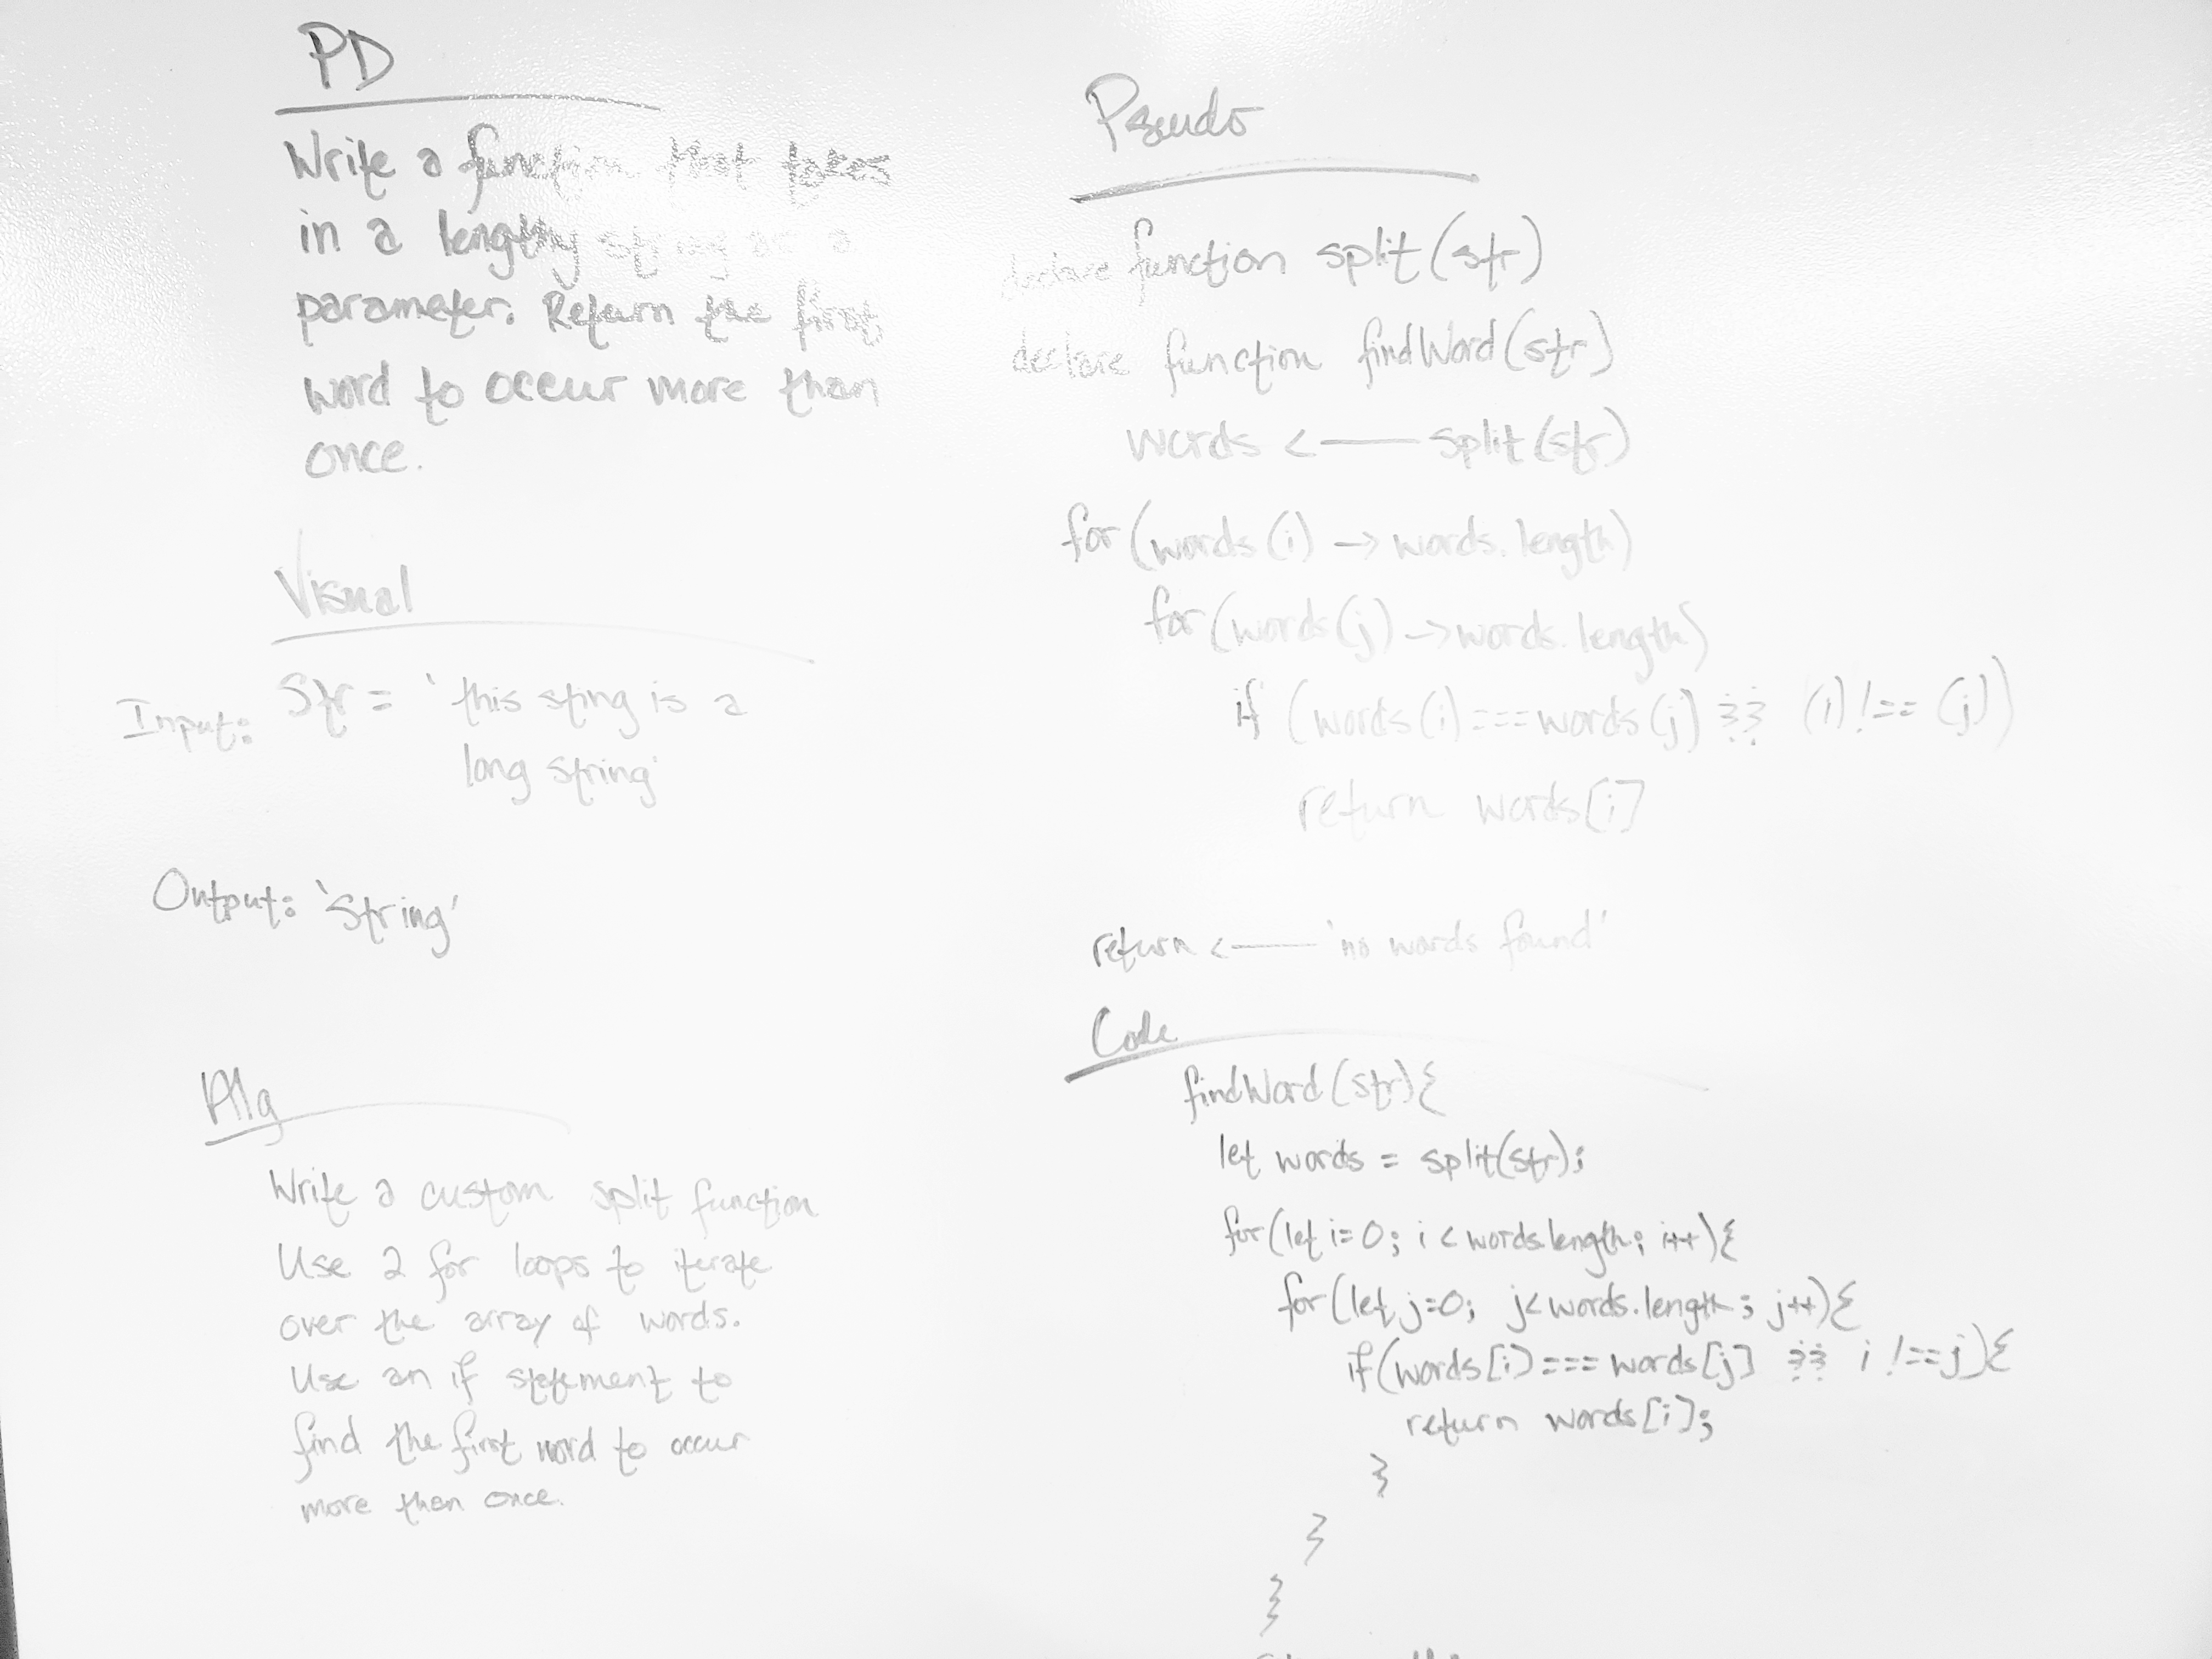 PD
Write a function that takes
in a lengthy string as a
parameter. Return the first
word to occur more than
once.
Visual
Input: Str = 'this sting is a
long string'
Output: 'String'
Alg
Write a custom split function
Use 2 for loops to iterate
over the array of words.
Use an if statement to
find the first word to occur
more than once.
Pseudo
declare function split(str)
declare function findWord(str)
words <— split(str)
for(words(i) -> words.length)
for(words(j) -> words.length)
if (words(i) === words(j) && (i) !== (j))
return words[i]
return <— 'no words found'
Code
findWord(str){
let words = split(str);
for(let i=0; i < words.length; i++){
for(let j=0; j<words.length; j++){
if(words[i] === words[j] && i !== j){
return words[i];
}
}
}